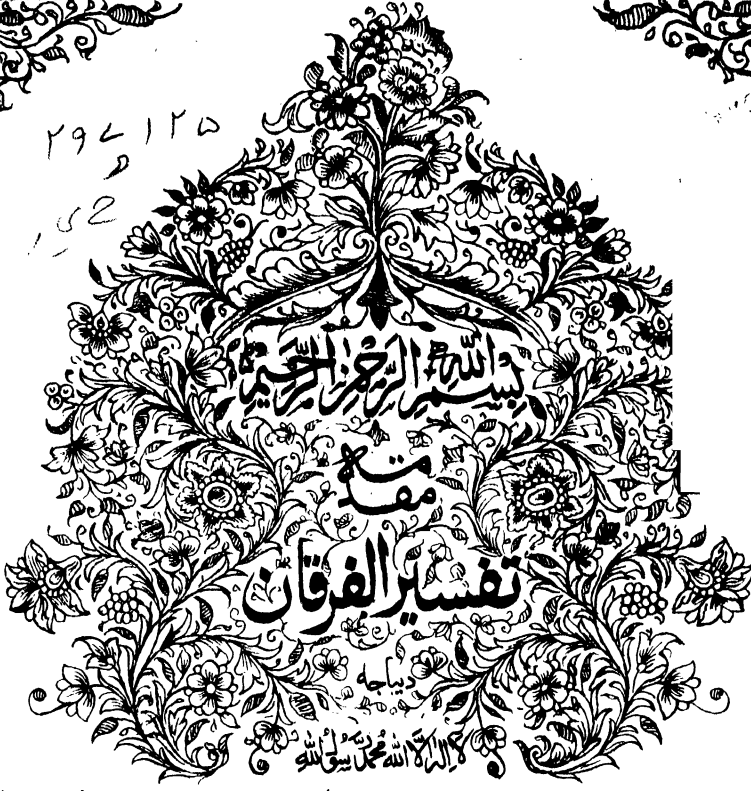 ۲۹۷۱۲۵
بِسْمِ اللّٰهِ الرَّحْمٰنِ الرَّحِيْمِ
مقدمہ
تفسیر الفرقان
دیباچہ
لا اِلٰهَ اِلَّا اللّٰهُ مُحَمَّدٌ رَسُوْلُ اللّٰهِ